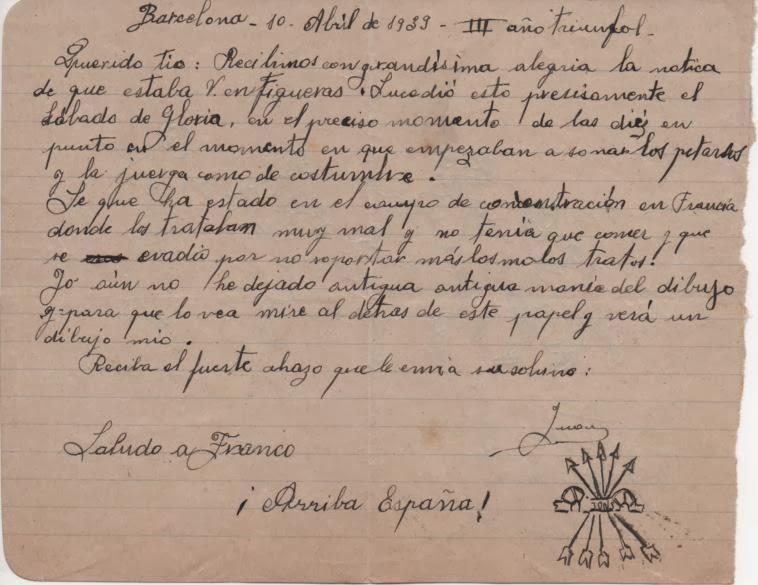 Barcelona - 10 - Abril de 1939 - III año triunfal -
Querido tio: Recibimos con grandísima alegria la notica
de que estaba V. en Figueras. Sucedió esto presisamente el
Sábado de Gloria, en el preciso momento de las diéz en
punto en el momento en que empezaban a sonar los petardos
y la juerga como de costumbre.
Se que ha estado en el campo de concentración en Francia
donde los trataban muy mal y no tenia que comer y que
se evadió por no soportar más los malos tratos.
Yo aún no he dejado antigua antigua mania del dibujo
y para que lo vea mire al detras de este papel y verá un
dibujo mio.
Reciba el fuerte abazo que le envia su sobrino:
Juan
Saludo a Franco
¡Arriba España!
JONS